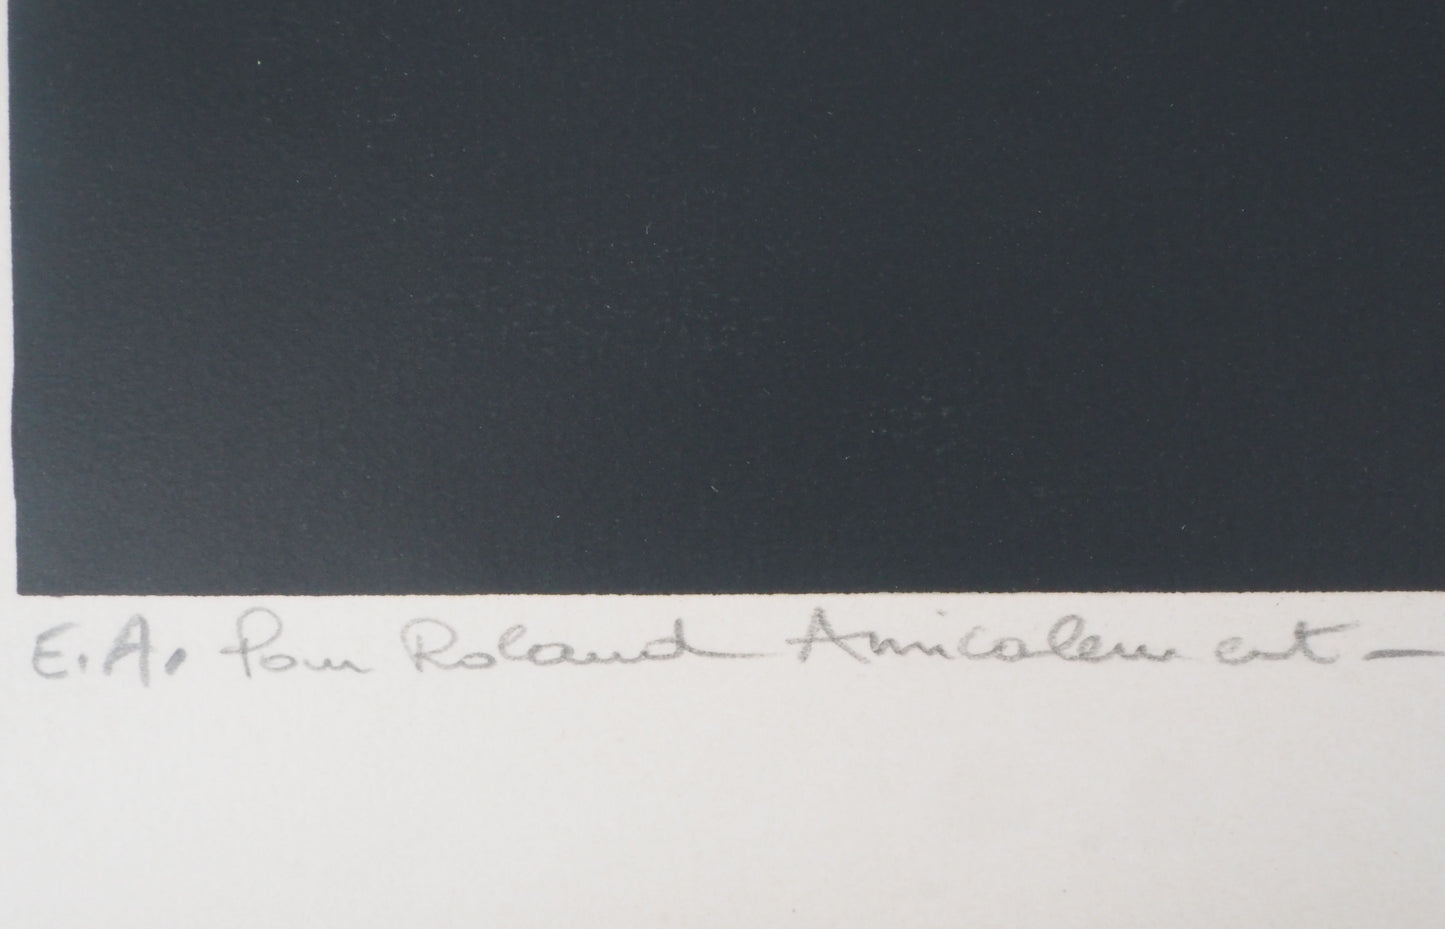 E.A. Pour Roland Amicalement —